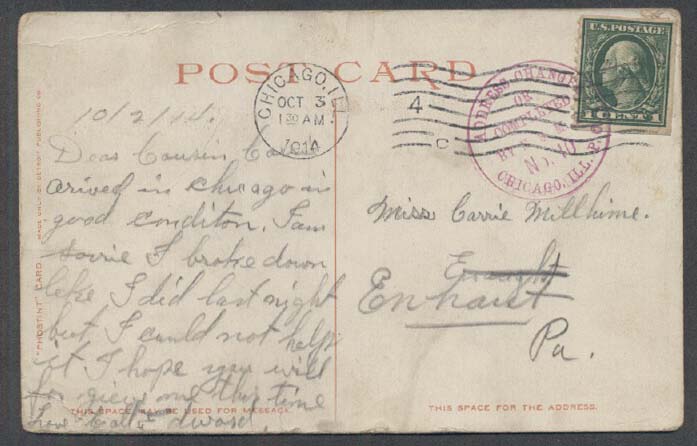 POST CARD
U.S. POSTAGE
1 CENT 1
CHICAGO, ILL
OCT 3
1 30 AM
1914
4
C
ADDRESS CHANGED
OR
COMPLETED
BY
No. 10
CHICAGO, ILL. P.O.
10/2/14.
Dear Cousin
arived in Chicago in
good conditon. I am
sorrie I broke down
like I did last night
but I could not help
it I hope you will
for give me this time
love
Miss Carrie Millhime.
Enhaut
Pa.
"PHOSTINT" CARD MADE ONLY BY DETROIT PUBLISHING CO.
THIS SPACE MAY BE USED FOR MESSAGE.
THIS SPACE FOR THE ADDRESS.